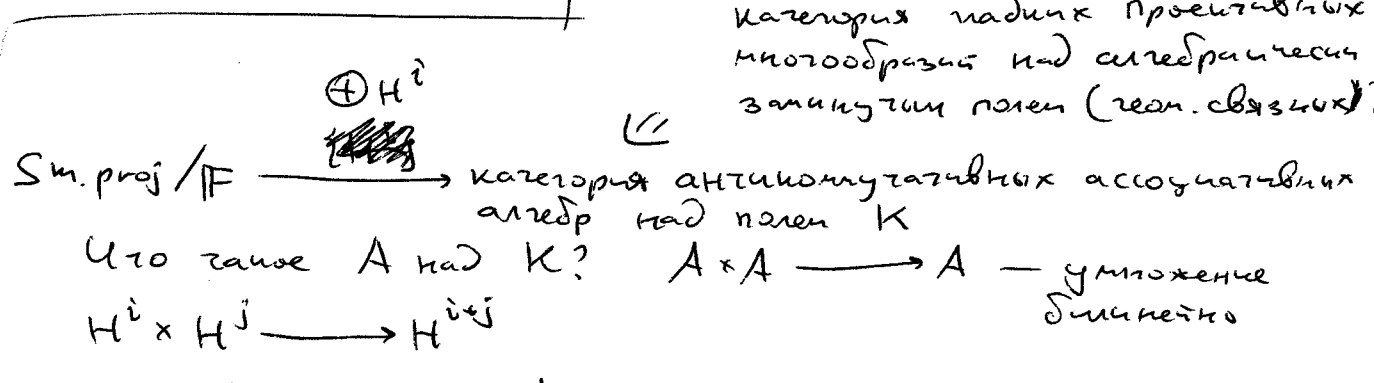 категория гладких проективных
многообразий над алгебраически
замкнутым полем (геом. связных)
⊕ H^i
Sm. proj / 𝔽 ⟶ категория антикоммутативных ассоциативных
алгебр над полем K
Что такое A над K? A × A ⟶ A — умножение
билинейно
H^i × H^j ⟶ H^{i+j}